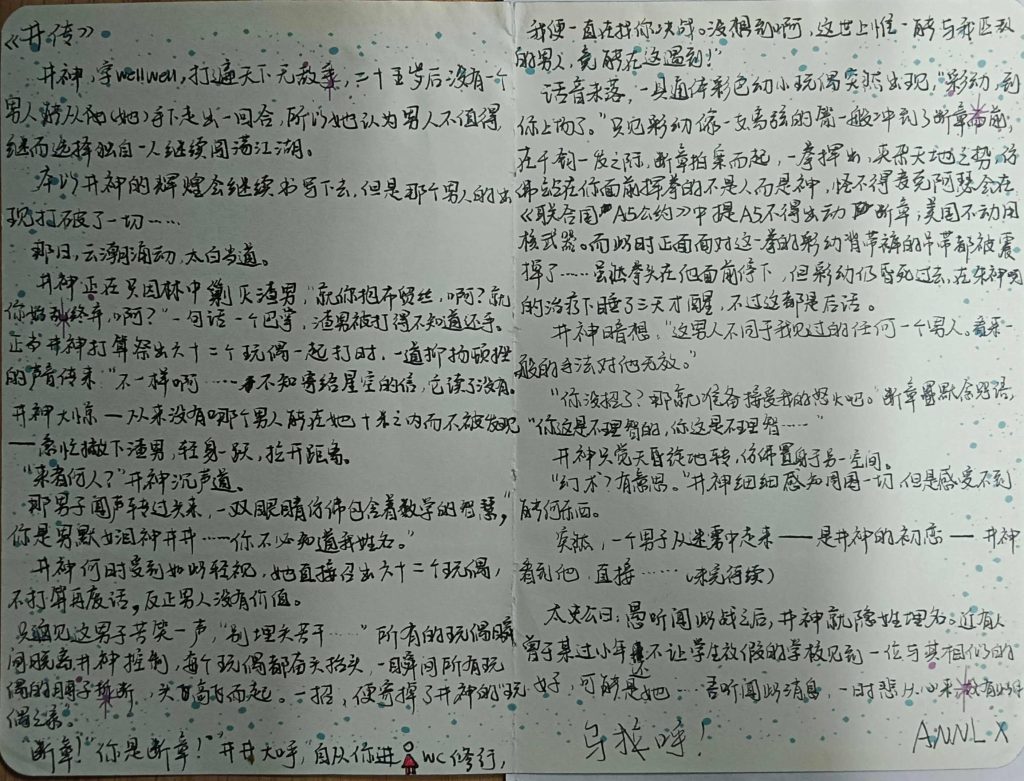 《井传》
井神,字wellwell,打遍天下无敌手,二十五岁后没有一个
男人能从他(她)手下走出一回合,所以她认为男人不值得,
继而选择独自一人继续闯荡江湖。
本以井神的辉煌会继续书写下去,但是那个男人的出
现打破了一切……
那日,云潮涌动,太白当道。
井神正在只因林中剿灭渣男,“就你抱布贸丝,啊?就
你始乱终弃,啊?”一句话一个巴掌,渣男被打得不知道还手。
正当井神打算祭出六十二个玩偶一起打时,一道抑扬顿挫
的声音传来“不一样啊……不知寄给星空的信,它读了没有。
井神大惊——从来没有哪个男人能在她十米之内而不被发现
——急忙撇下渣男,轻身一跃,拉开距离。
“来者何人?”井神沉声道。
那男子闻声转过头来,一双眼睛仿佛包含着数学的智慧,“
你是男默女泪神井井……你不必知道我姓名。”
井神何时受到如此轻视,她直接召出六十二个玩偶,
不打算再废话,反正男人没有价值。
只见这男子苦笑一声,“别埋头苦干……”所有的玩偶瞬
间脱离井神控制,每个玩偶都面天抬头,一瞬间所有玩
偶的脖子折断,头高高而起。一招,便寄掉了井神的玩
偶之袭。
断章!“你是断章!”井井大呼,自从你进WC修行,
我便一直在找你决战。没想到啊,这世上惟一能与我匹敌
的男人,竟能在这遇到!”
话音未落,一具通体彩色幼小玩偶突然出现,“彩幼,到
你上场了。”只见彩幼像一支离弦的箭一般冲到了断章面前,
在千钧一发之际,断章拍案而起,一拳挥出,夹杂天地之势,仿
佛站在你面前挥拳的不是人而是神,怪不得麦克阿瑟会在
《联合国A5公约》中提A5不得出动断章,美国不动用
核武器。而此时正面面对这一拳的彩幼背带裤的吊带都被震
掉了……虽然拳头在他面前停下,但彩幼仍昏死过去,在朱神明
的治疗下睡了三天才醒,不过这都是后话。
井神暗想,“这男人不同于我见过的任何一个男人。看来一
般的手法对他无效。”
“你没招了?那就准备接受我的怒火吧。”断章默念咒语,
“你这是不理智的,你这是不理智……”
井神只觉天昏旋地转,仿佛置身于另一空间。
“幻术?有意思。”井神细细感知周围一切,但是感受不到
任何东西。
突然,一个男子从迷雾中走来——是井神的初恋——井神
看到他,直接……(未完待续)
太史公曰:愚听闻此战之后,井神就隐姓埋名。近有人
曾于某过小年还不让学生放假的学校见到一位与其相似的
女子,可能是她……吾听闻此消息,一时悲从心来,
乌拉呼!
ANNLX